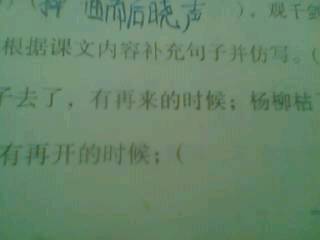 曲而后晓声 )。观千剑
根据课文内容补充句子并仿写。(
子去了，有再来的时候；杨柳枯
有再开的时候；(